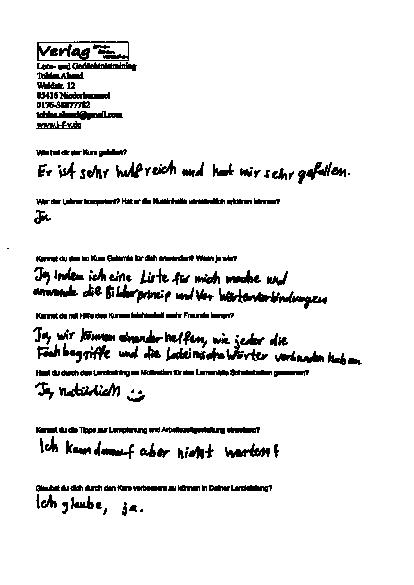 Verlag
Lern- und Gedächtnistraining
Tobias
Waldstr. 12
85416 Niederhummel
www.i-f-v.de
Wie hat dir der Kurs gefallen?
Er ist sehr hilfreich und hat mir sehr gefallen.
War der Lehrer kompetent? Hat er die Kursinhalte verständlich erklären können?
Ja
Kannst du das im Kurs Gelernte für dich anwenden? Wenn ja wie?
Ja, Indem ich eine Liste für mich mache und
anwende die Bilderprinzip und Wörterverbindungen
Kannst du mit Hilfe des Kurses
Ja, wir können einander helfen, wie jeder die
Fachbegriffe und die Lateinische Wörter verbunden haben
Hast du durch das Lerntraining an Motivation für das Lernen gewonnen?
Ja, natürlich
Kannst du die Tipps zur Lernplanung und Arbeitsplatzgestaltung
Ich kann darauf aber nicht warten!
Glaubst du dich durch den Kurs verbessern zu können in Deiner Lernleistung?
Ich glaube, ja.